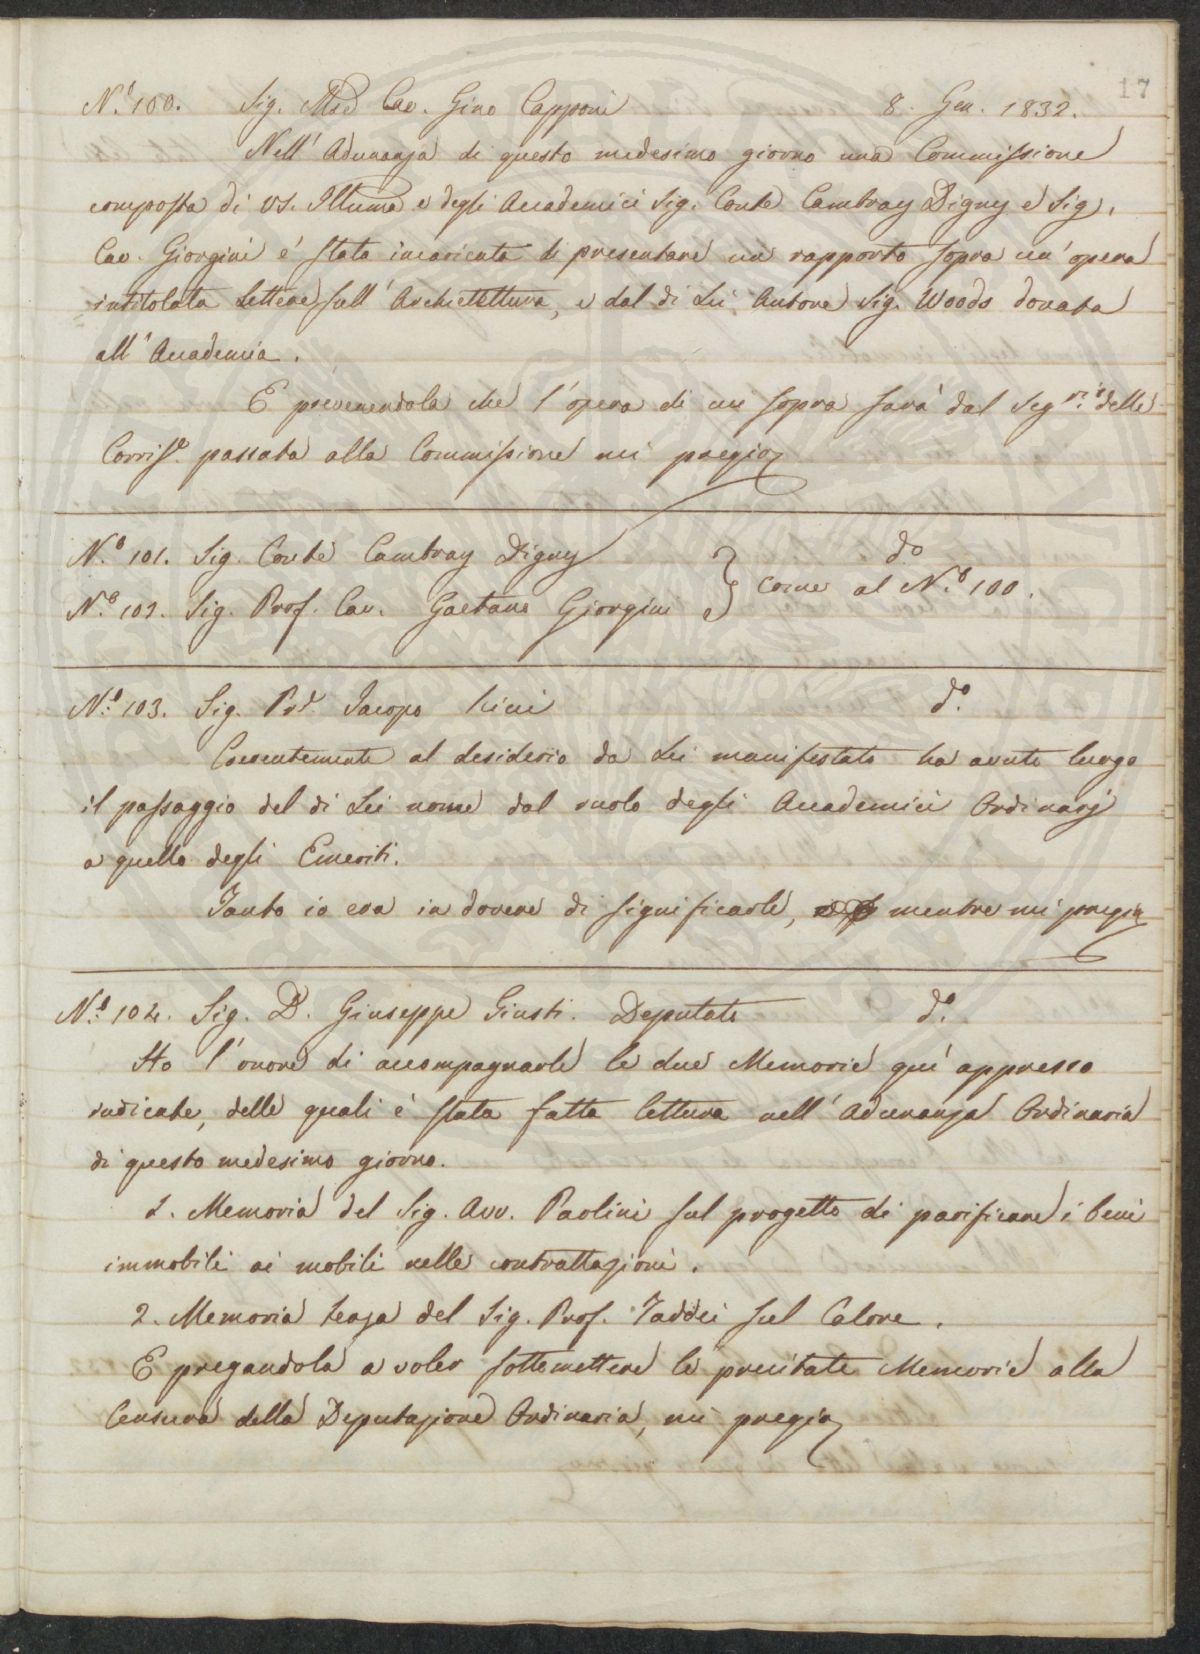 17
N.° 100. Sig. Mse Cav. Gino Capponi 8. Gen. 1832.
Nell' Adunanza di questo medesimo giorno una Commissione
composta di VS. Illuma e degli Accademici Sig. Conte Cambray Digny e Sig.
Cav. Giorgini è stata incaricata di presentare un rapporto sopra un' opera
intitolata Lettere sull' Architettura, e dal di Lei Autore Sig. Woods donata
all' Accademia.
E prevenendola che l' opera di cui sopra sarà dal Segr.io delle
Corrisp.e passata alla Commissione mi pregio
N.° 101. Sig. Conte Cambray Digny } d°
N.° 102. Sig. Prof. Cav. Gaetano Giorgini } come al N.° 100.
N.° 103. Sig. Jacopo Ricci d.°
Coerentemente al desiderio da Lei manifestato ha avuto luogo
il passaggio del di Lei nome dal ruolo degli Accademici Ordinarj
a quello degli Emeriti.
Tanto io era in dovere di significarle, mentre mi pregio
N.° 104. Sig. D. Giuseppe Giusti. Deputato d.°
Ho l' onore di accompagnarle le due Memorie qui appresso
indicate, delle quali è stata fatta lettura nell' Adunanza Ordinaria
di questo medesimo giorno.
1. Memoria del Sig. Avv. Paolini sul progetto di parificare i beni
immobili ai mobili nelle contrattazioni.
2. Memoria terza del Sig. Prof. Taddei sul Calore.
E pregandola a voler sottomettere le precitate Memorie alla
Censura della Deputazione Ordinaria, mi pregio